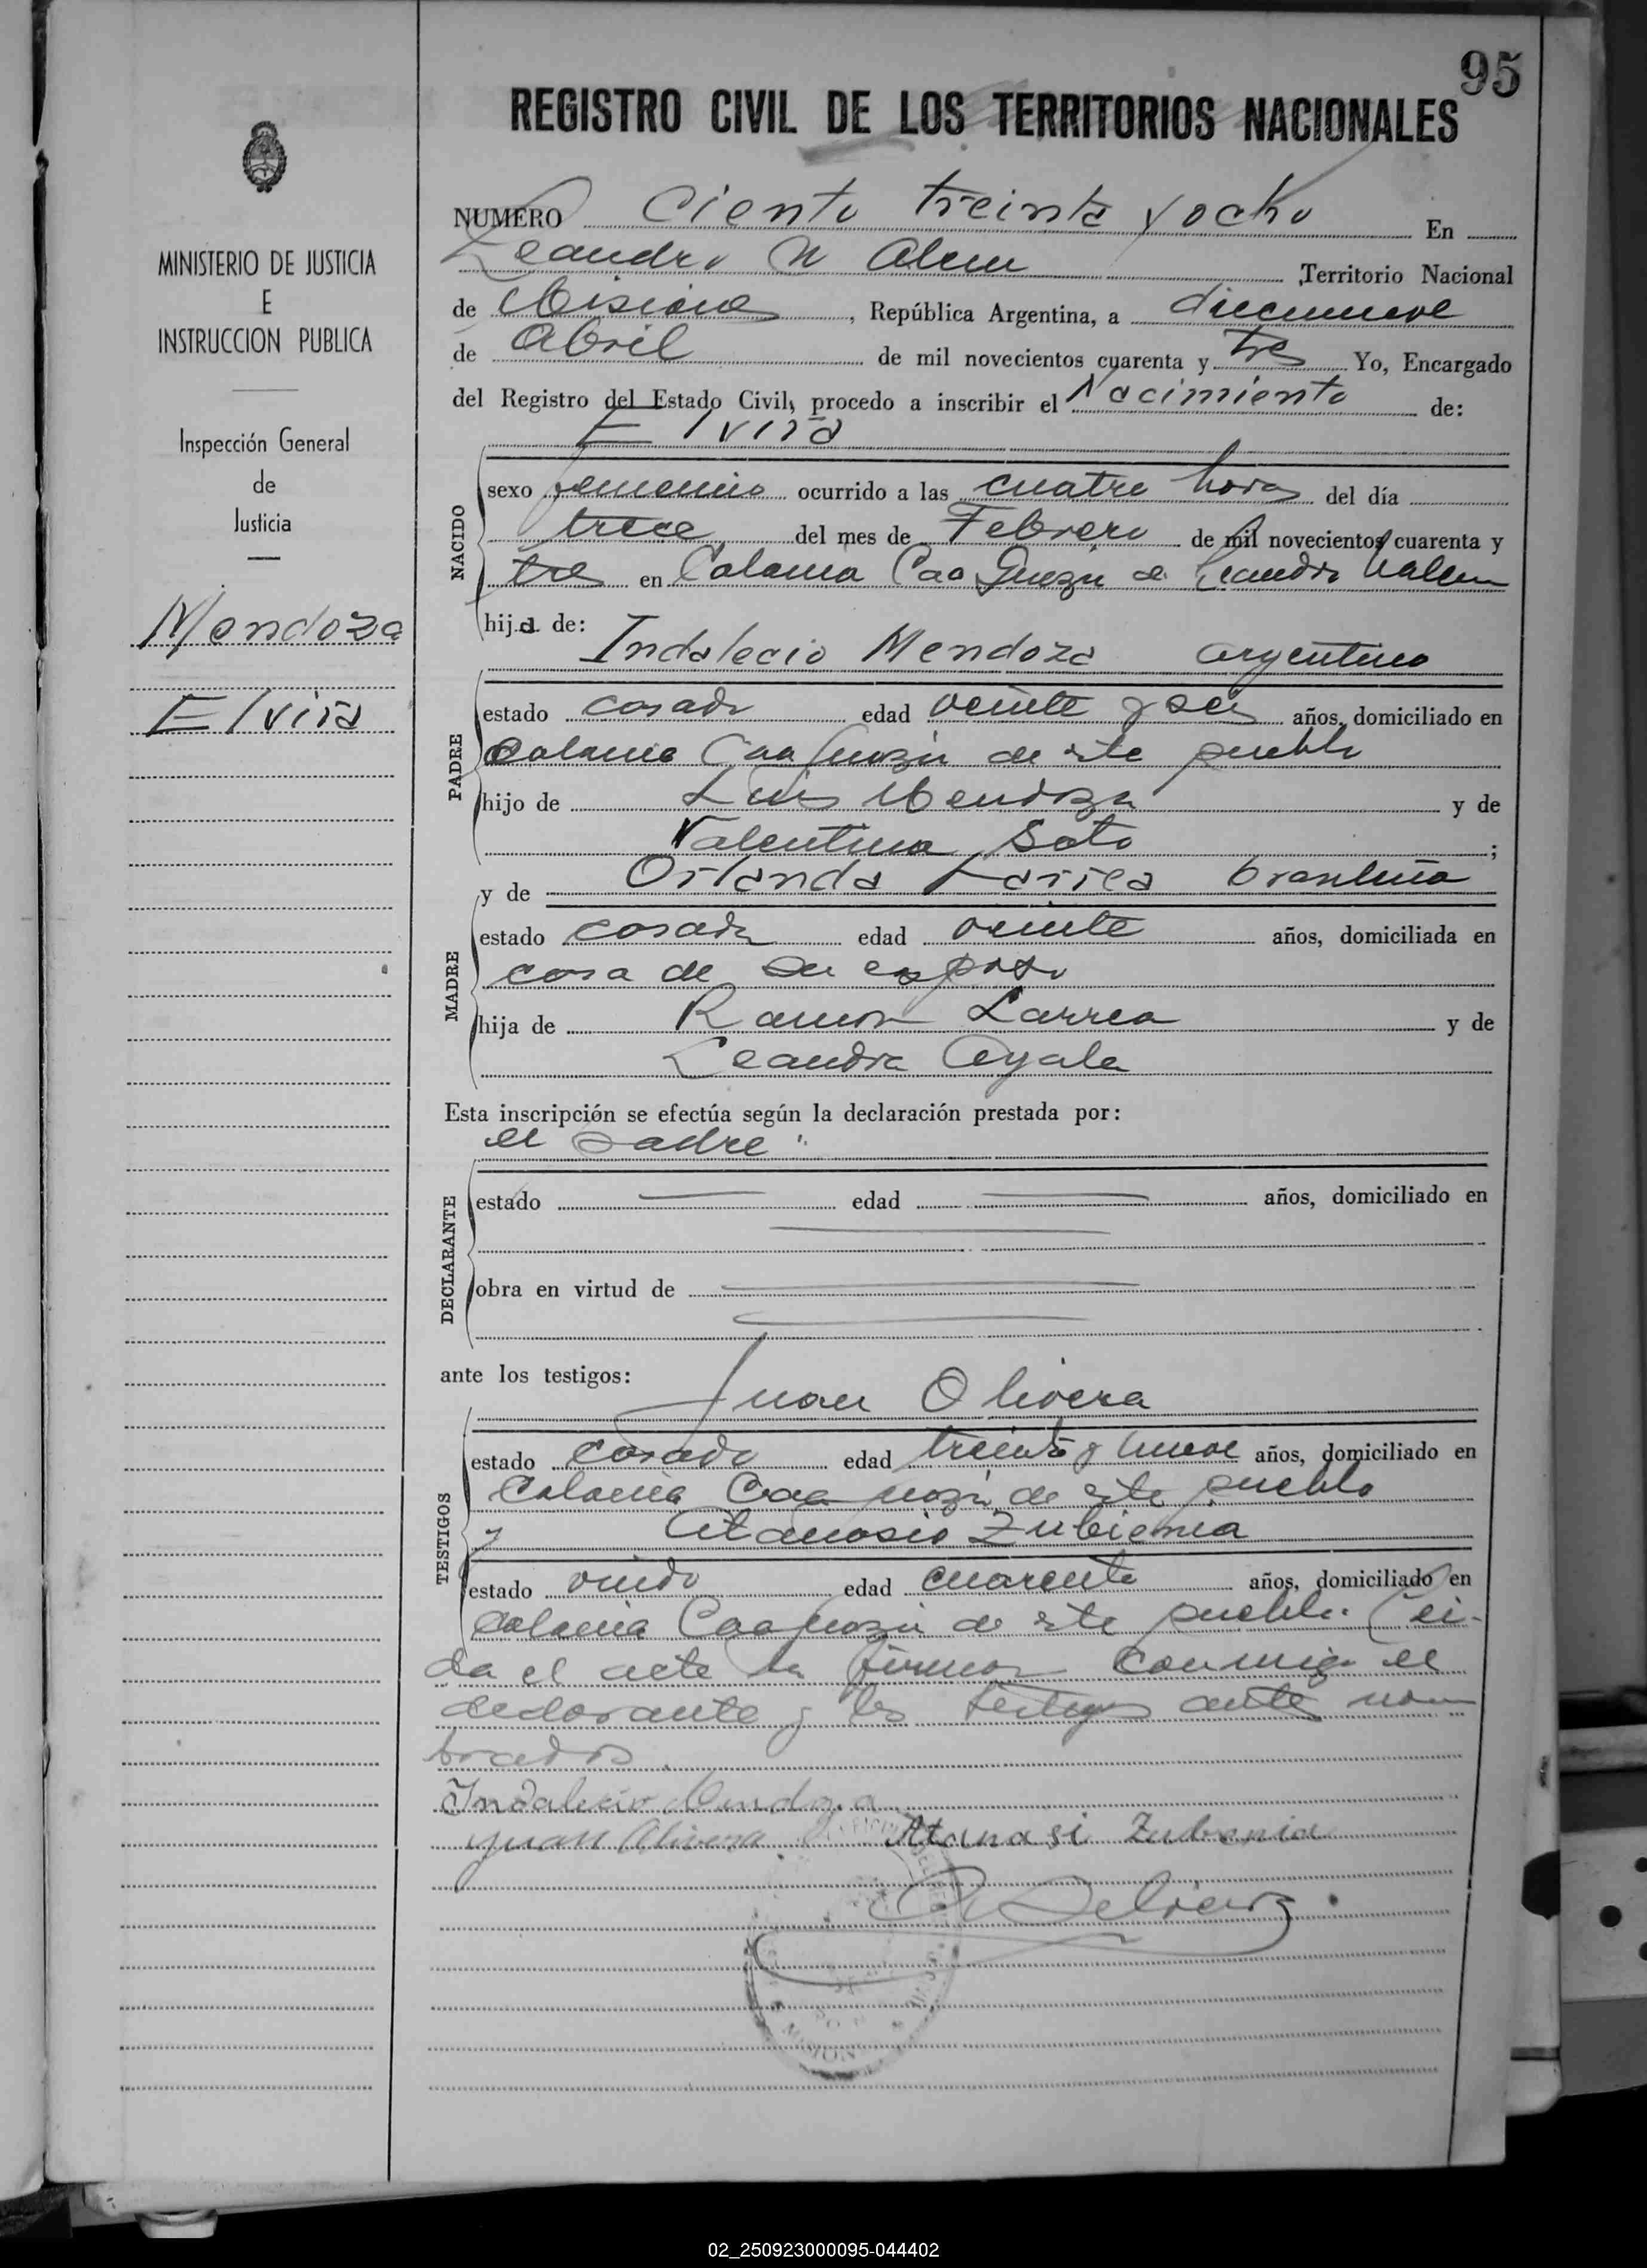 95
REGISTRO CIVIL DE LOS TERRITORIOS NACIONALES
MINISTERIO DE JUSTICIA
E
INSTRUCCION PUBLICA
Inspección General
de
Justicia
Mendoza
Elvira
NUMERO Ciento treinta y ocho En
Leandro N Alem Territorio Nacional
de Misiones, República Argentina, a diecinueve
de Abril de mil novecientos cuarenta y tres Yo, Encargado
del Registro del Estado Civil, procedo a inscribir el Nacimiento de:
Elvira
NACIDO
sexo femenino ocurrido a las cuatro horas del día
trece del mes de Febrero de mil novecientos cuarenta y
tres en Colonia Caa Guazú de Leandro N alem
hija de:
Indalecio Mendoza argentino
PADRE
estado casado edad veinte y seis años, domiciliado en
Colonia Caa Guazú de este pueblo
hijo de Luis Mendoza y de
Valentina Soto;
y de Orlanda Larrea brasileña
MADRE
estado casada edad veinte años, domiciliada en
casa de su esposo
hija de Ramon Larrea y de
Leandra Ayala
Esta inscripción se efectúa según la declaración prestada por:
el padre
DECLARANTE
estado edad años, domiciliado en
obra en virtud de
ante los testigos:
Juan Olivera
TESTIGOS
estado casado edad treinta y nueve años, domiciliado en
Colonia Caa guazú de este pueblo
y Atanasio Zubienia
estado viudo edad cuarenta años, domiciliado en
colonia Caa guazú de este pueblo. Lei-
da el acta la firman conmigo el
declarante y los testigos antes nom
brados.
Indalecio Mendoza
Juan Olivera Atanasi Zubenia
02_250923000095-044402